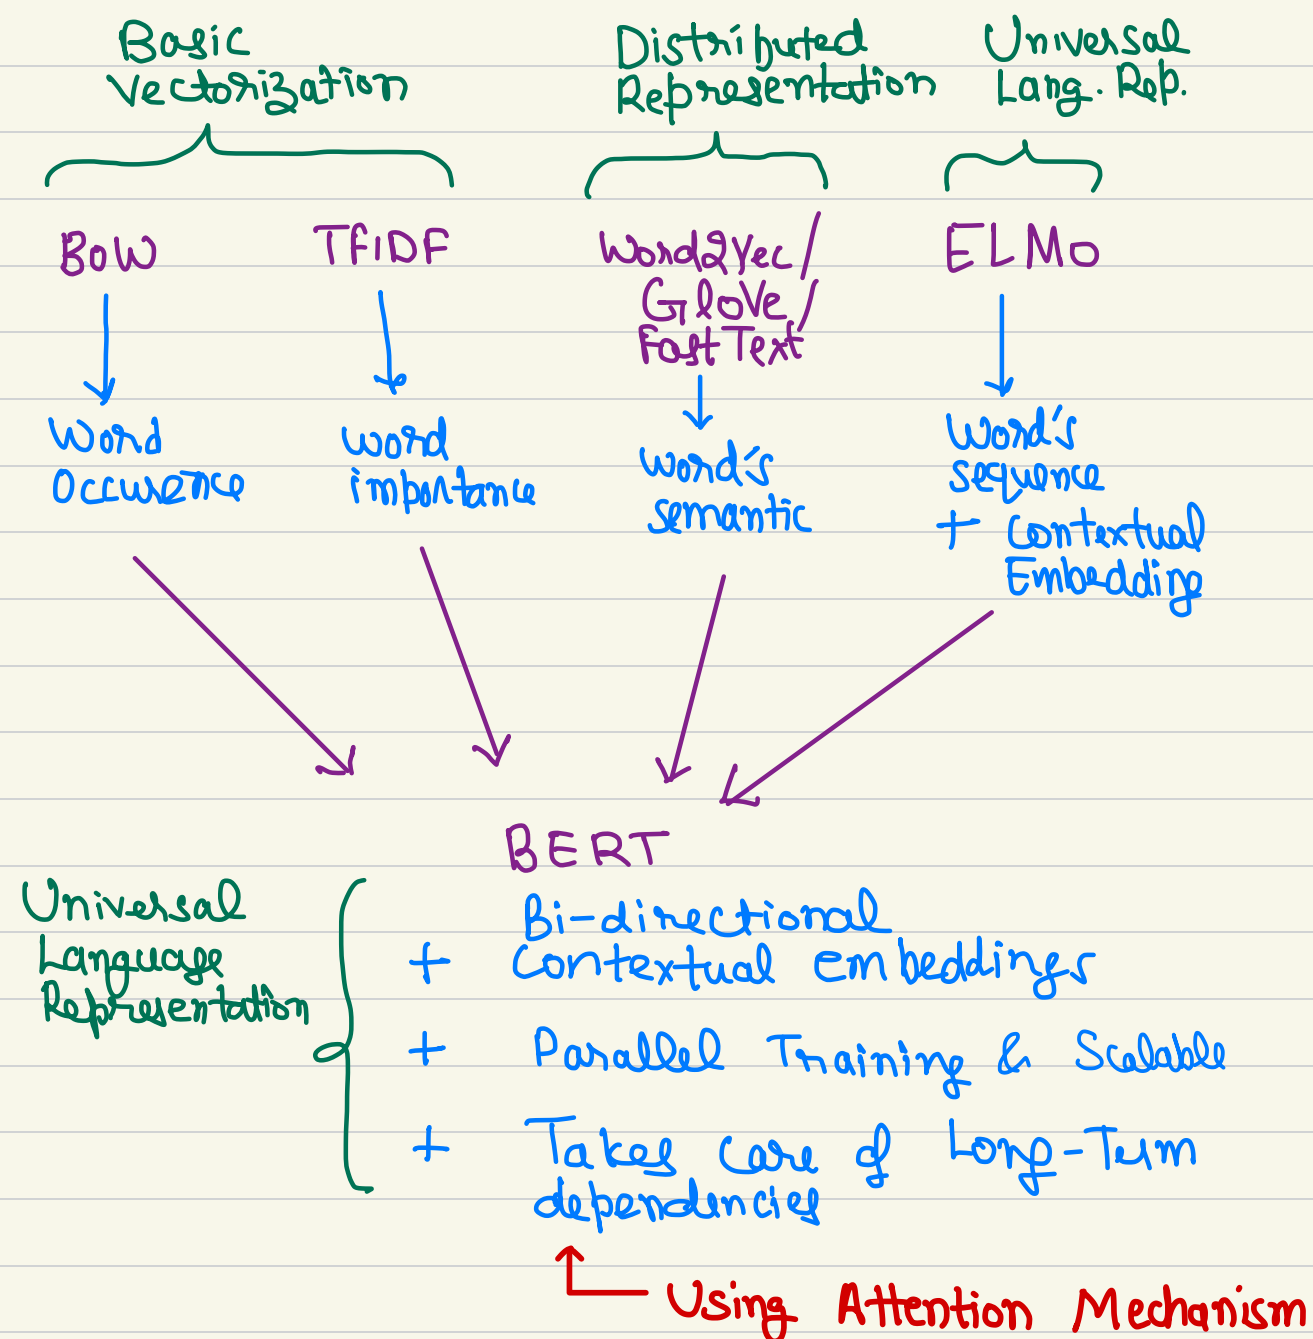 Basic
Vectorization
Distributed
Representation
Universal
Lang. Rep.
BOW
TFIDF
Word2Vec/
GloVe/
FastText
ELMo
Word
Occurence
word
importance
word's
semantic
Word's
sequence
+ Contextual
Embedding
BERT
Universal
Language
Representation
Bi-directional
+ Contextual embeddings
+ Parallel Training & Scalable
+ Takes care of Long-Term
dependencies
Using Attention Mechanism